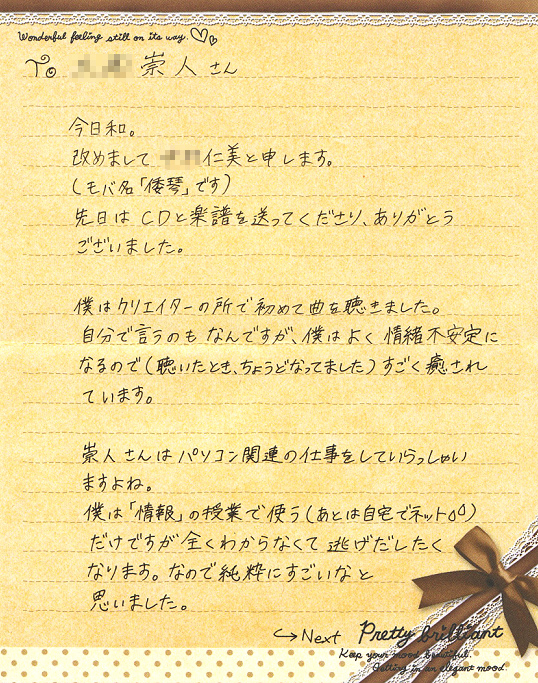 Wonderful feeling still on its way.
To 崇人さん
今日和。
改めまして 仁美と申します。
(モバ名「倭琴」です)
先日はCDと楽譜を送ってくださり、ありがとう
ございました。
僕はクリエイターの所で初めて曲を聴きました。
自分で言うのもなんですが、僕はよく情緒不安定に
なるので(聴いたとき、ちょうどなってました)すごく癒され
ています。
崇人さんはパソコン関連の仕事をしていらっしゃい
ますよね。
僕は「情報」の授業で使う(あとは自宅でネット)
だけですが全くわからなくて逃げだしたく
なります。なので純粋にすごいなと
思いました。
→Next Pretty brilliant
Keep your mood beautiful.
Getting in an elegant mood.